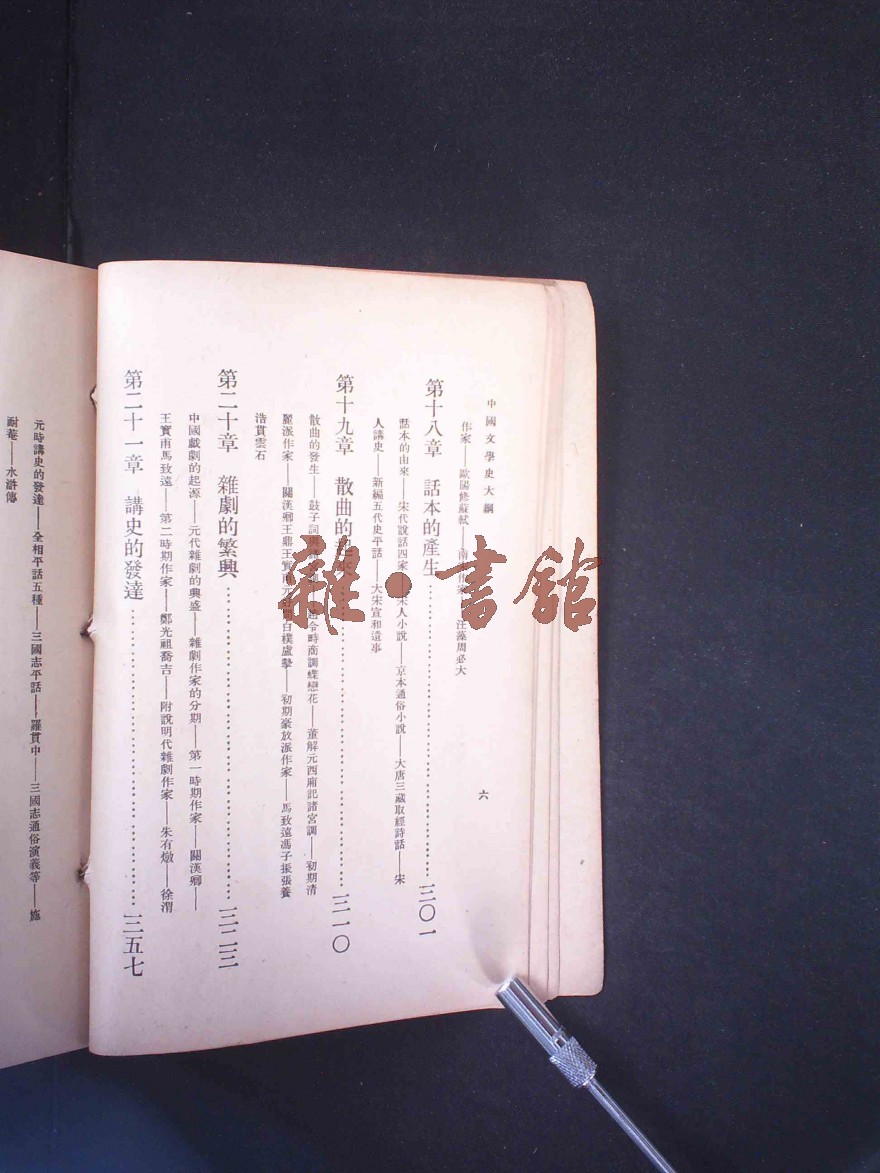 中國文學史大綱
六
作家——歐陽修蘇軾——南 作家 汪藻周必大
第十八章 話本的產生 三〇一
話本的由來——宋代說話四家 宋人小說——京本通俗小說——大唐三藏取經詩話——宋
人講史——新編五代史平話——大宋宣和遺事
第十九章 散曲的 三一〇
散曲的發生——鼓子詞與 趙令畤商調蝶戀花——董解元西廂記諸宮調——初期清
麗派作家——關漢卿王鼎王實甫元 白樸盧摯——初期豪放派作家——馬致遠馮子振張養
浩貫雲石
第二十章 雜劇的繁興 三二三
中國戲劇的起源——元代雜劇的興盛——雜劇作家的分期——第一時期作家——關漢卿——
王實甫馬致遠——第二時期作家——鄭光祖喬吉——附說明代雜劇作家——朱有燉——徐渭
第二十一章 講史的發達 三五七
元時講史的發達——全相平話五種——三國志平話——羅貫中——三國志通俗演義等——施
耐菴——水滸傳
雜·書館